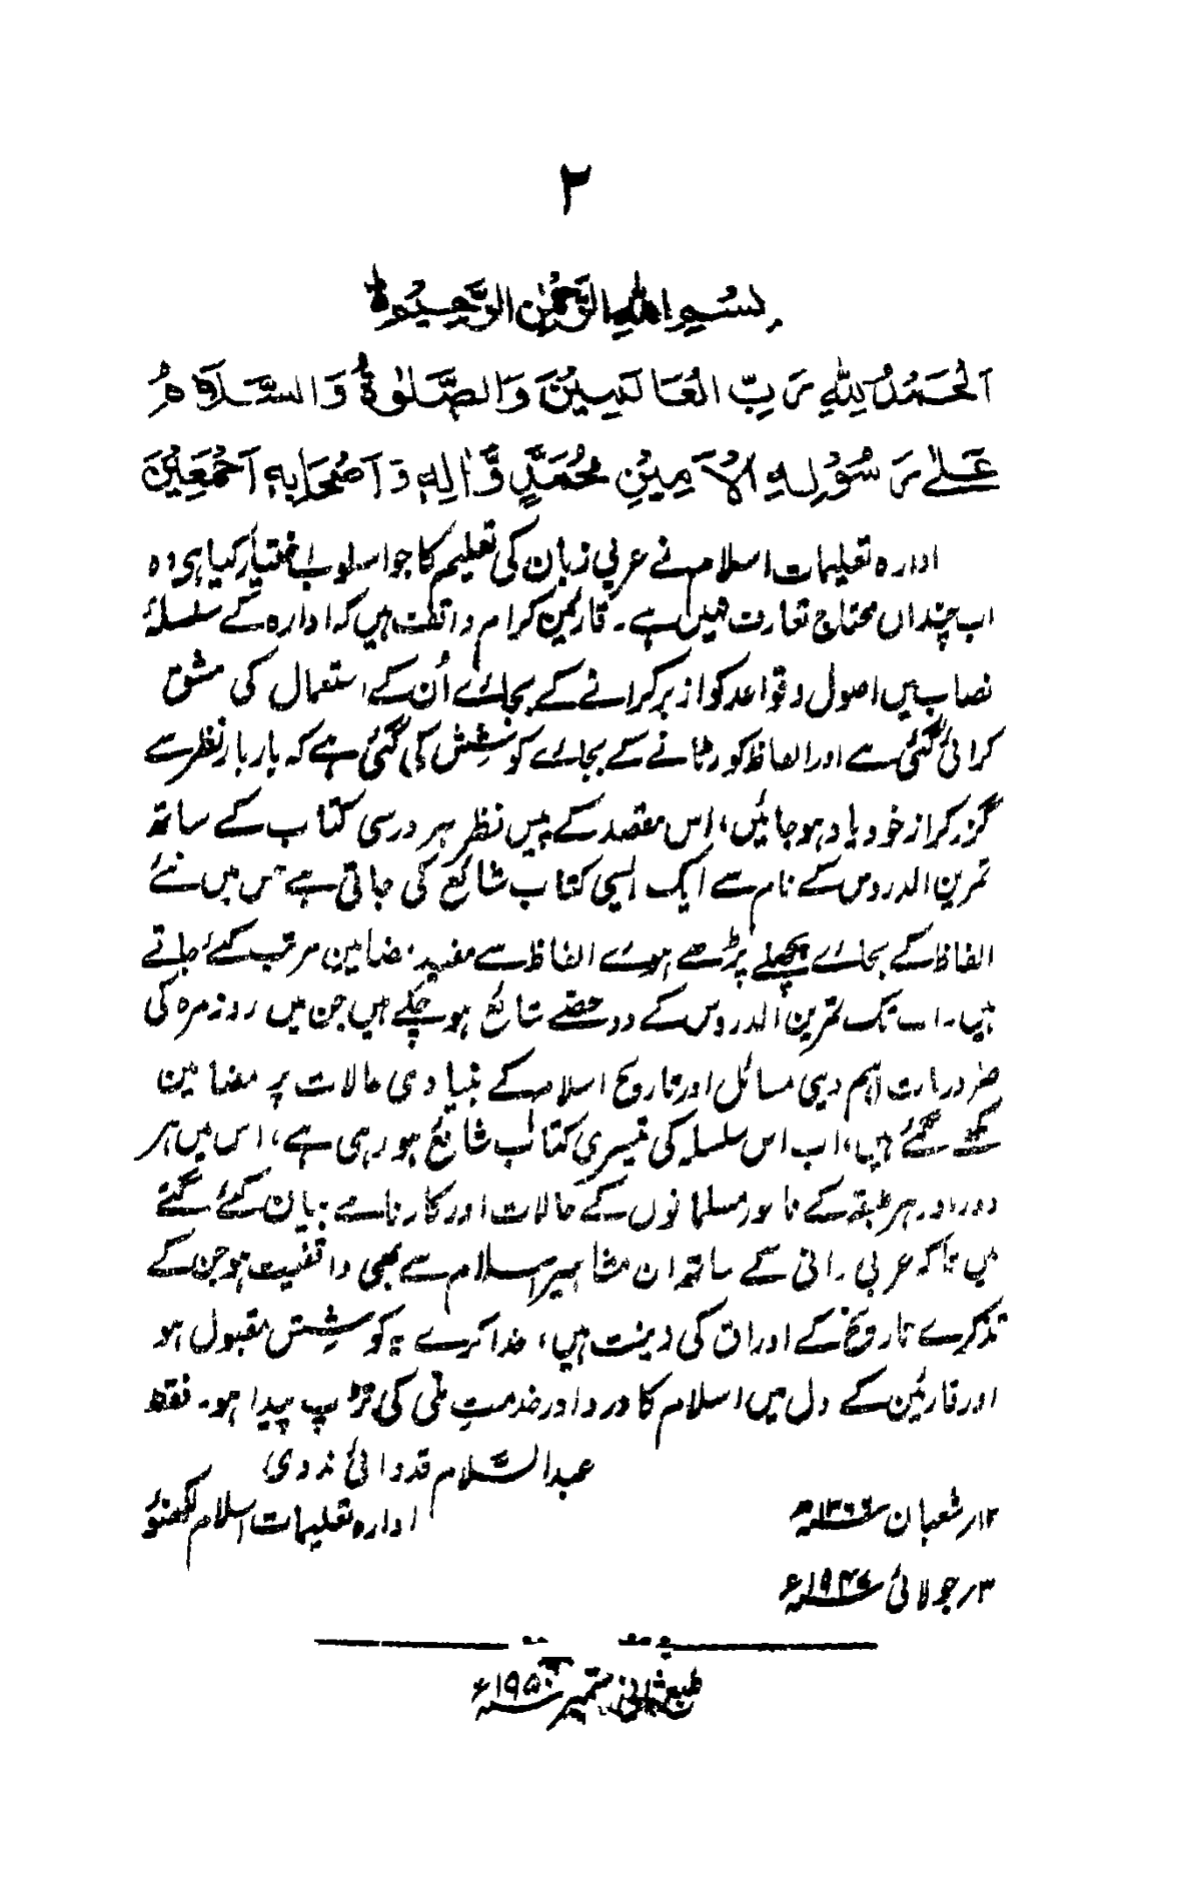 ۲
بِسْمِ اللهِ الرَّحْمٰنِ الرَّحِيْمِ
اَلْحَمْدُ لِلّٰهِ رَبِّ الْعَالَمِيْنَ وَالصَّلٰوةُ وَالسَّلَامُ
عَلٰى رَسُوْلِهِ الْاَمِيْنِ مُحَمَّدٍ وَّاٰلِهٖ وَاَصْحَابِهٖ اَجْمَعِيْنَ
ادارہ تعلیمات اسلام نے عربی زبان کی تعلیم کا جو اسلوب اختیار کیا ہی وہ
اب چنداں محتاج تعارف نہیں ہے۔ قارئین کرام واقف ہیں کہ ادارہ کے سلسلۂ
نصاب میں اصول و قواعد کو ازبر کرانے کے بجائے اُن کے استعمال کی مشق
کرائی گئی ہے اور الفاظ کو رٹانے کے بجائے کوشش کی گئی ہے کہ بار بار نظر سے
گزر کر از خود یاد ہو جائیں، اس مقصد کے پیش نظر ہر درسی کتاب کے ساتھ
تمرین الدروس کے نام سے ایک ایسی کتاب شائع کی جاتی ہے جس میں نئے
الفاظ کے بجائے پچھلے پڑھے ہوئے الفاظ سے مفید مضامین مرتب کئے جاتے
ہیں۔ اب تک تمرین الدروس کے دو حصّے شائع ہو چکے ہیں جن میں روزمرہ کی
ضروریات اہم دینی مسائل اور تاریخ اسلام کے بنیادی حالات پر مضامین
لکھے گئے ہیں، اب اس سلسلہ کی تیسری کتاب شائع ہو رہی ہے، اس میں ہر
دور اور ہر طبقہ کے نامور مسلمانوں کے حالات اور کارنامے بیان کئے گئے
ہیں تاکہ عربی دانی کے ساتھ ان مشاہیر اسلام سے بھی واقفیت ہو جن کے
تذکرے تاریخ کے اوراق کی زینت ہیں، خدا کرے یہ کوشش مقبول ہو
اور قارئین کے دل میں اسلام کا درد اور خدمتِ ملی کی تڑپ پیدا ہو۔ فقط
عبدالسّلام قدوائی ندوی
ادارہ تعلیمات اسلام لکھنؤ
۱۲؍ شعبان ۱۳۶۶ھ
۳؍ جولائی ۱۹۴۷ء
طبع ثانی ستمبر ۱۹۵۰ء